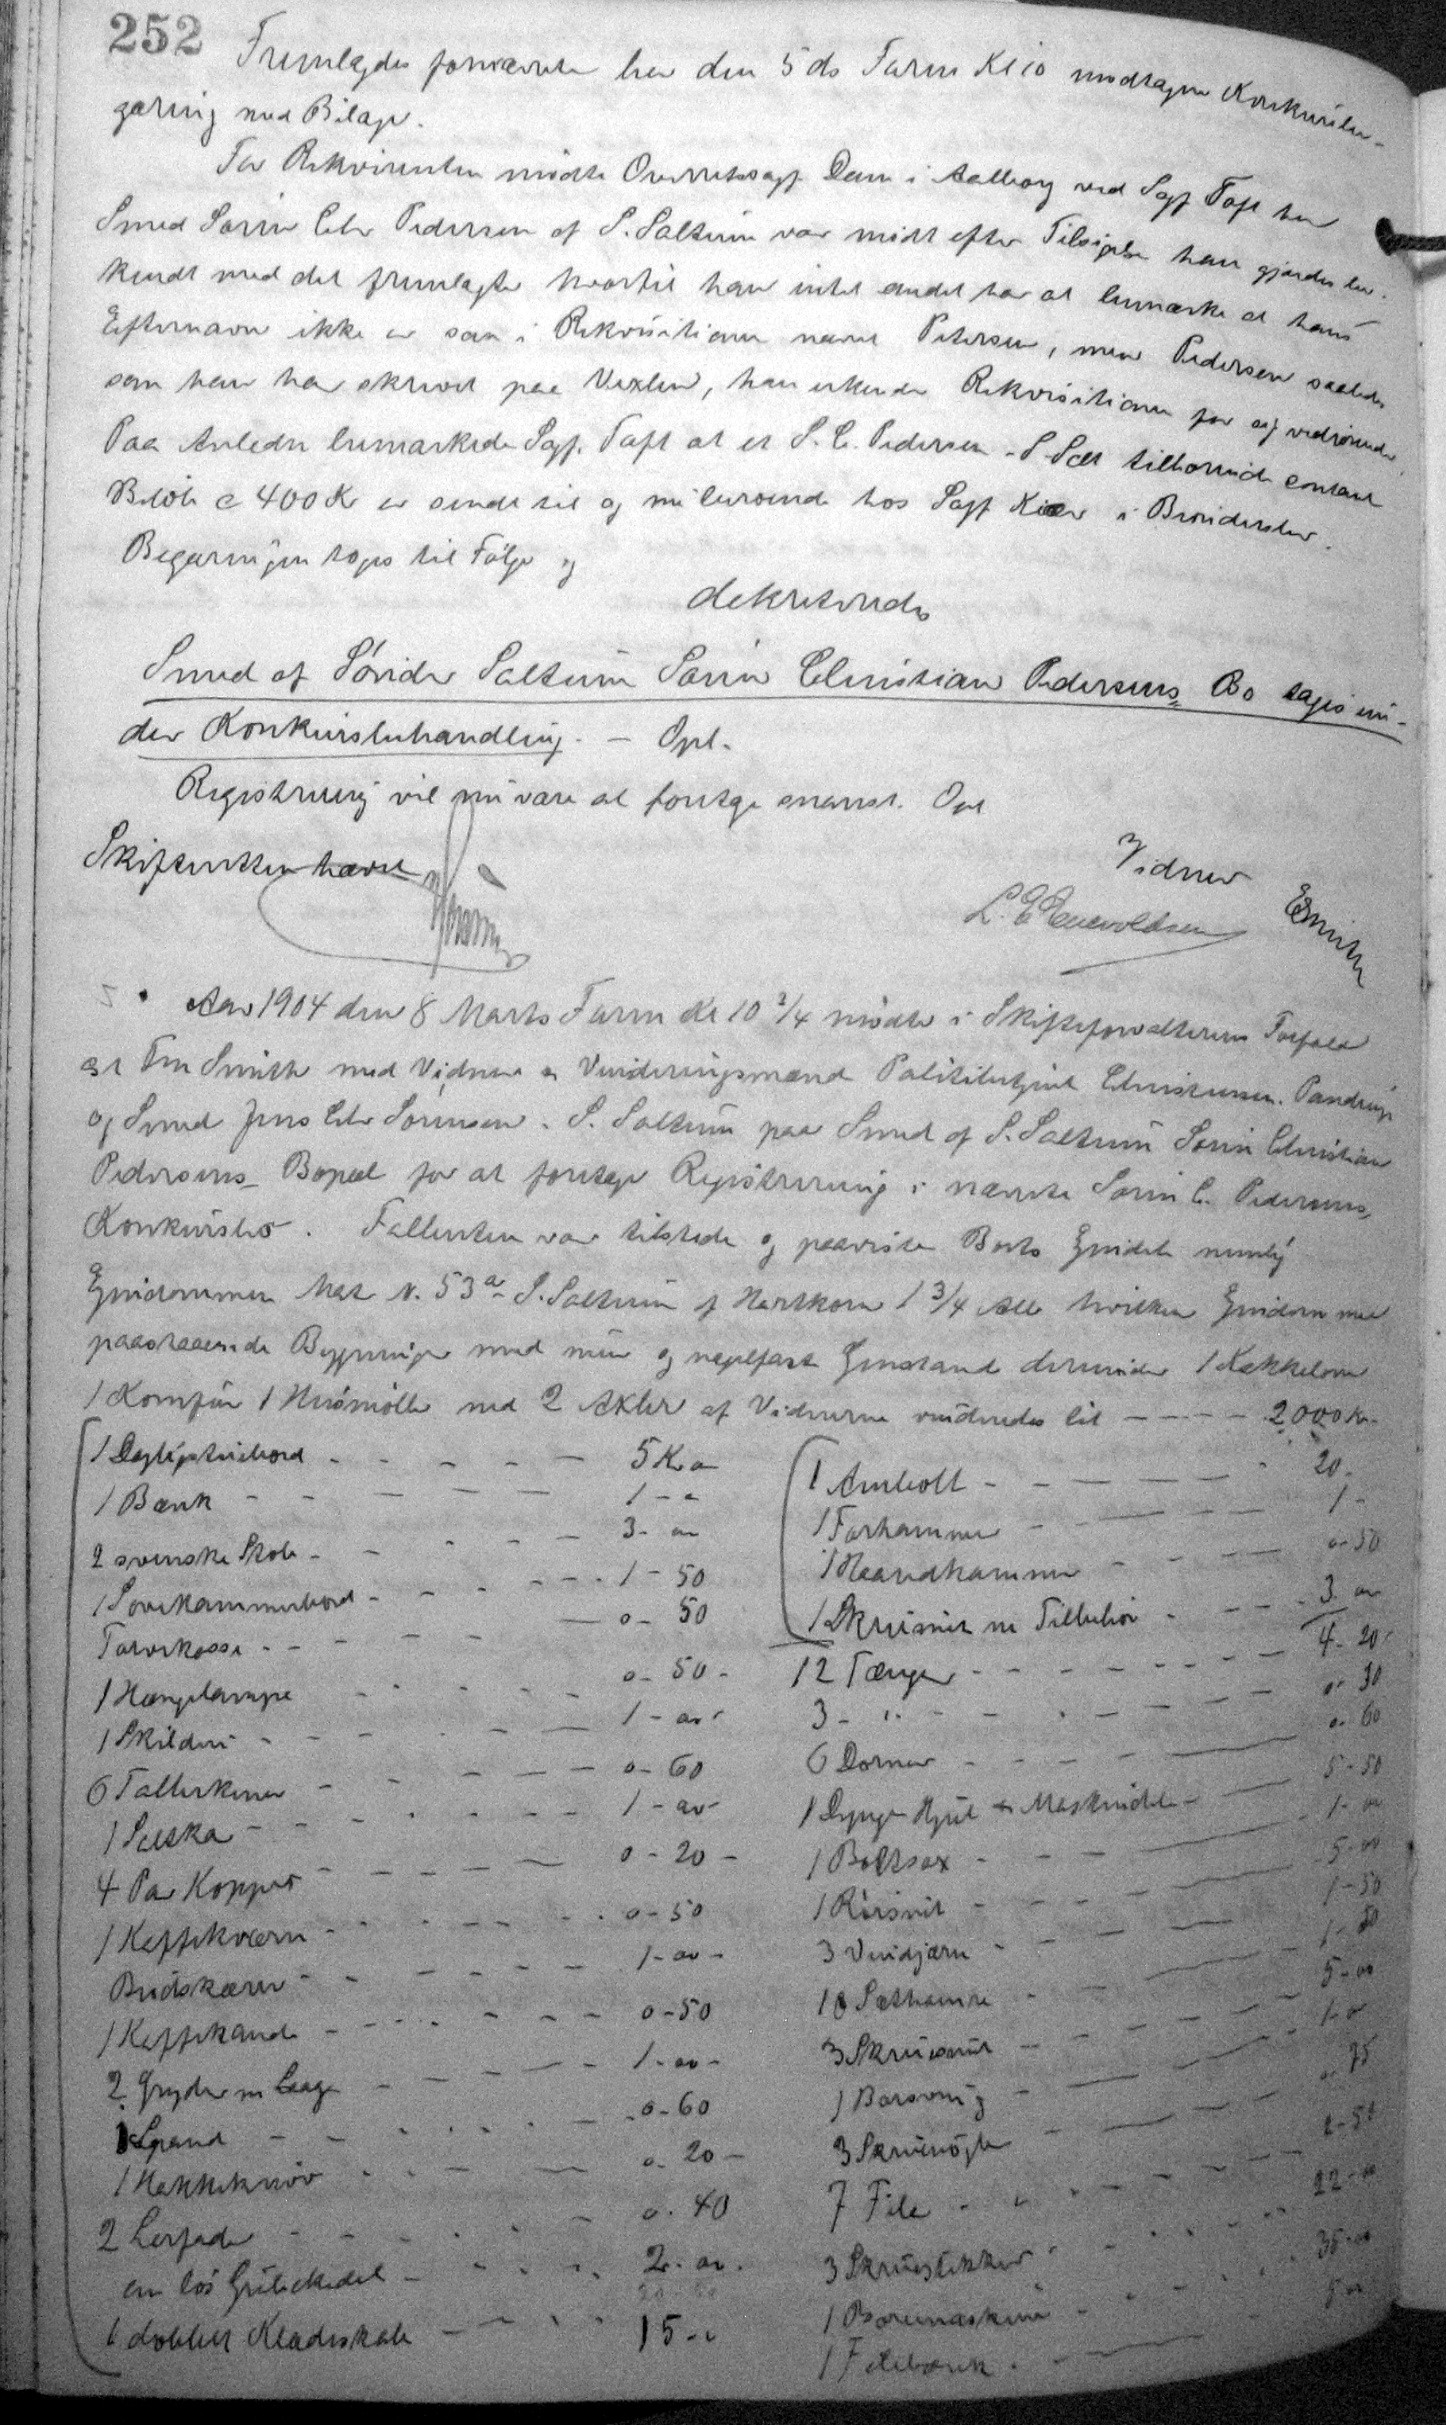 252
Fremlagdes forneværnte her den 5 ds Form Kl 10 modtagne Konkursbe-
gæring med Bilage.
For Rekvirenten mødte Overretssagf. Dam i Aalborg ved Sagf Toft her
Smed Søren Chr Pedersen af S. Saltum var mødt efter Tilsigelse han gjordes be-
kendt med det fremlagte hvortil han intet andet har at bemærke at hans
Efternavn ikke er som i Rekvisitionen nævnt Petersen, men Pedersen saaledes
som han har skrevet paa Vexlen, han erkender Rekvisitionen for sig vedrørende.
Paa Anledn bemærkede Sagf. Toft at et S. C. Pedersen S. Salt tilhørende contant
Beløb c 400 Kr er sendt til og nu beroende hos Sagf Kiær i Brønderslev.
Begæringen toges til Følge og
dekreteredes
Smed af Sønder Saltum Søren Christian Pedersens Bo tages un-
der Konkursbehandling. – Opl.
Registrering vil nu være at foretage snarest. Opl
Skifteretten hævet
Vidner
L. E. Enevoldsen
Smith
Aar 1904 den 8 Marts Form Kl 10 3/4 mødte i Skifteforvalterens Forfald
Fm Smith med Vidner og Vurderingsmænd Politibetjent Christensen. Pandrup
og Smed Jens Chr Sørensen. S. Saltum paa Smed af S. Saltum Søren Christian
Pedersens Bopæl for at foretage Registrering i nævnte Søren C. Pedersens
Konkursbo. Fallenten var tilstede og paaviste Boets Ejendele nemlig
Ejendommen Matr N. 53 a S. Saltum af Hartkorn 1 3/4 Alb hvilken Ejendom med
paastaaende Bygninger med mur og nagelfast Genstand derunder 1 Kakkelovn
1 Komfur 1 Husmølle med 2 Axler af Vidnerne vurderedes til – – – – 2000 Kr
1 Dagligstuebord – – – – – 5 Kr
1 Bænk – – – – – 1 –
2 svenske Stole – – – – 3 –
1 Sovekammerbord – – – – 1 – 50
Tørvekasse – – – – 0 – 50
1 Hængelampe – – – – 0 – 50 –
1 Skilderi – – – – 1 –
6 Tallerkener – – – – 0 – 60
1 – – – – 1 –
4 Par Kopper – – – – 0 – 20 –
1 Kaffekværn – – – – 0 – 50
Brødskærer – – – – 1 –
1 Kaffekande – – – – 0 – 50
2 Gryder m Laag – – – – 1 –
1 Spand – – – – 0 – 60
1 Hakkekniv – – – – 0 – 20 –
2 Lerfade – – – – 0 – 40
en løs Gruekedel – – – – 2 –
1 dobbelt Klædeskab – – – – 15 –
1 Ambolt – – – – 20 –
1 Forhammer – – – – 1 –
1 Haandhammer – – – – 0 – 50
1 Skruesnit m Tilbehør – – – – 3
12 Tænger – – – – 4 – 20
3 – " – – – – 0 – 30
6 Dorner – – – – 0 – 60
1 Dynge Hjul & Maskindele – – 5 – 50
1 Boltsax – – – – 1 –
1 Rørsnit – – – – 5 –
3 Vindjærn – – – – 1 – 50
Sæthamre – – – –
3 Skruesnit – – – – 5 –
1 Borsving – – – – 1 –
3 Skruenøgler – – – – 75
7 File – – – –
3 Skruestikker – – – – 22 –
1 Boremaskine – – – – 35 –
1 Filebænk – – – – 5